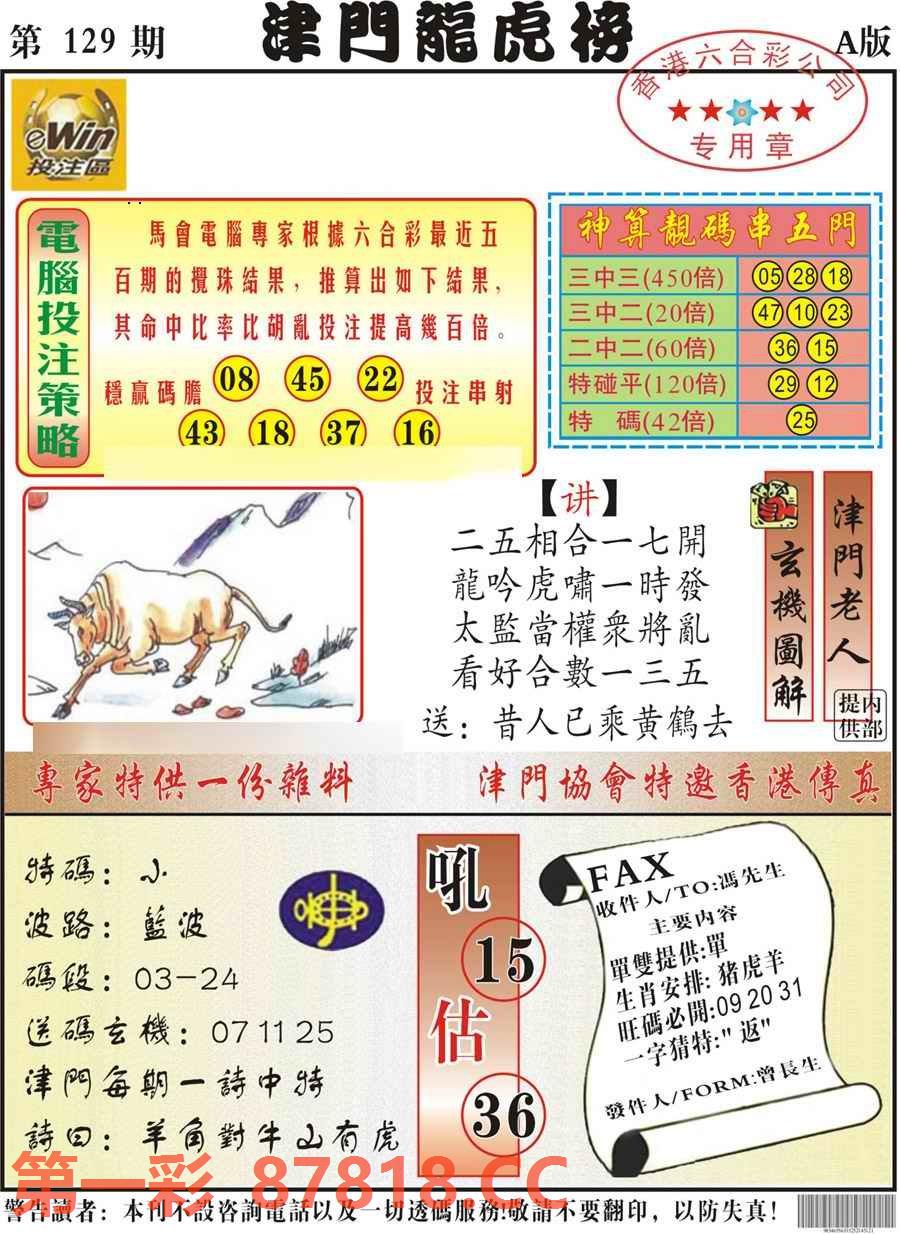 第 129 期
津門龍虎榜
A版
香港六合彩公司
专用章
eWin
投注區
電腦投注策略
馬會電腦專家根據六合彩最近五
百期的攪珠結果，推算出如下結果，
其命中比率比胡亂投注提高幾百倍。
穩贏碼膽 08 45 22 投注串射
43 18 37 16
神算靚碼串五門
三中三(450倍) 05 28 18
三中二(20倍) 47 10 23
二中二(60倍) 36 15
特碰平(120倍) 29 12
特 碼(42倍) 25
【讲】
二五相合一七開
龍吟虎嘯一時發
太監當權衆將亂
看好合數一三五
送：昔人已乘黄鶴去
玄機圖解
津門老人
内部提供
專家特供一份雜料
津門協會特邀香港傳真
特碼：小
波路：藍波
碼段：03-24
送碼玄機：07 11 25
津門每期一詩中特
詩曰：羊角對牛山有虎
吼
15
估
36
FAX
收件人/TO:馮先生
主要内容
單雙提供:單
生肖安排:猪虎羊
旺碼必開:09 20 31
一字猜特:"返"
發件人/FORM:曾長生
第一彩 87818.CC
警告讀者：本刊不設咨詢電話以及一切透碼服務!敬請不要翻印，以防失真!